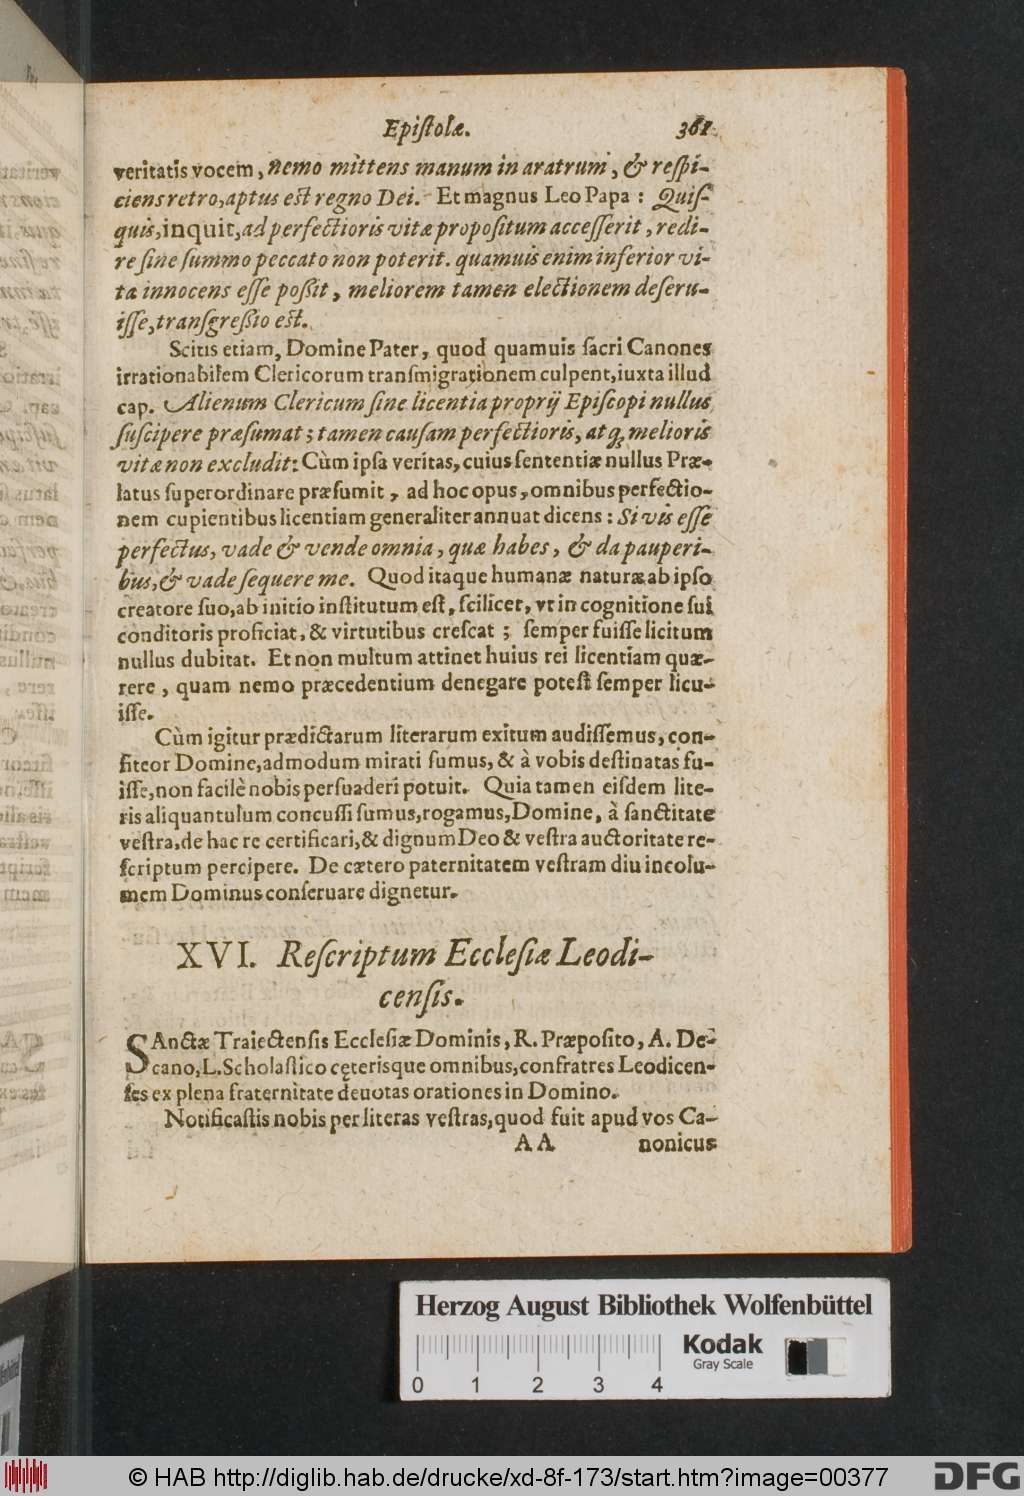 Epiſtolæ. 361
veritatis vocem, nemo mittens manum in aratrum, & reſpi-
ciens retro, aptus eſt regno Dei. Et magnus Leo Papa: Quiſ-
quis, inquit, ad perfectioris vitæ propoſitum acceſſerit, redi-
re ſine ſummo peccato non poterit. quamuis enim inferior vi-
ta innocens eſſe poßit, meliorem tamen electionem deſeru-
iſſe, tranſgreßio eſt.
Scitis etiam, Domine Pater, quod quamuis ſacri Canones
irrationabilem Clericorum tranſmigrationem culpent, iuxta illud
cap. Alienum Clericum ſine licentia proprij Epiſcopi nullus
ſuſcipere præſumat; tamen cauſam perfectioris, atq; melioris
vitæ non excludit: Cùm ipſa veritas, cuius ſententiæ nullus Præ-
latus ſuperordinare præſumit, ad hoc opus, omnibus perfectio-
nem cupientibus licentiam generaliter annuat dicens: Si vis eſſe
perfectus, vade & vende omnia, quæ habes, & da pauperi-
bus, & vade ſequere me. Quod itaque humanæ naturæ ab ipſo
creatore ſuo, ab initio inſtitutum eſt, ſcilicet, vt in cognitione ſui
conditoris proficiat, & virtutibus creſcat; ſemper fuiſſe licitum
nullus dubitat. Et non multum attinet huius rei licentiam quæ-
rere, quam nemo præcedentium denegare poteſt ſemper licu-
iſſe.
Cùm igitur prædictarum literarum exitum audiſſemus, con-
fiteor Domine, admodum mirati ſumus, & à vobis deſtinatas fu-
iſſe, non facilè nobis perſuaderi potuit. Quia tamen eiſdem lite-
ris aliquantulum concuſſi ſumus, rogamus, Domine, à ſanctitate
veſtra, de hac re certificari, & dignum Deo & veſtra auctoritate re-
ſcriptum percipere. De cætero paternitatem veſtram diu incolu-
mem Dominus conſeruare dignetur.
XVI. Reſcriptum Eccleſiæ Leodi-
cenſis.
SAnctæ Traiectenſis Eccleſiæ Dominis, R. Præpoſito, A. De-
cano, L. Scholaſtico cęterisque omnibus, confratres Leodicen-
ſes ex plena fraternitate deuotas orationes in Domino.
Notificaſtis nobis per literas veſtras, quod fuit apud vos Ca-
AA nonicus
Herzog August Bibliothek Wolfenbüttel
Kodak
Gray Scale
0 1 2 3 4
© HAB http://diglib.hab.de/drucke/xd-8f-173/start.htm?image=00377
DFG